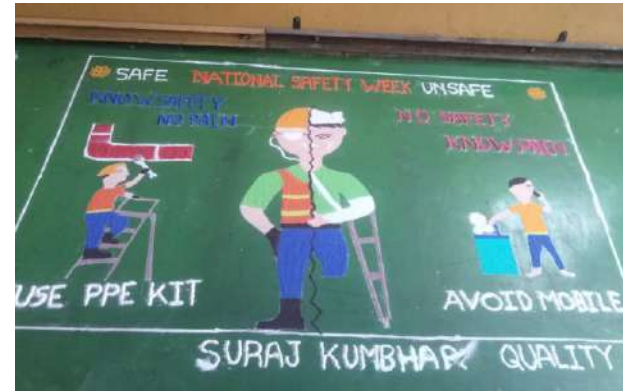 SAFE NATIONAL SAFETY WEEK UNSAFE
KNOW SAFETY
NO PAIN
NO SAFETY
KNOW PAIN
USE PPE KIT
AVOID MOBILE
SURAJ KUMBHAR QUALITY